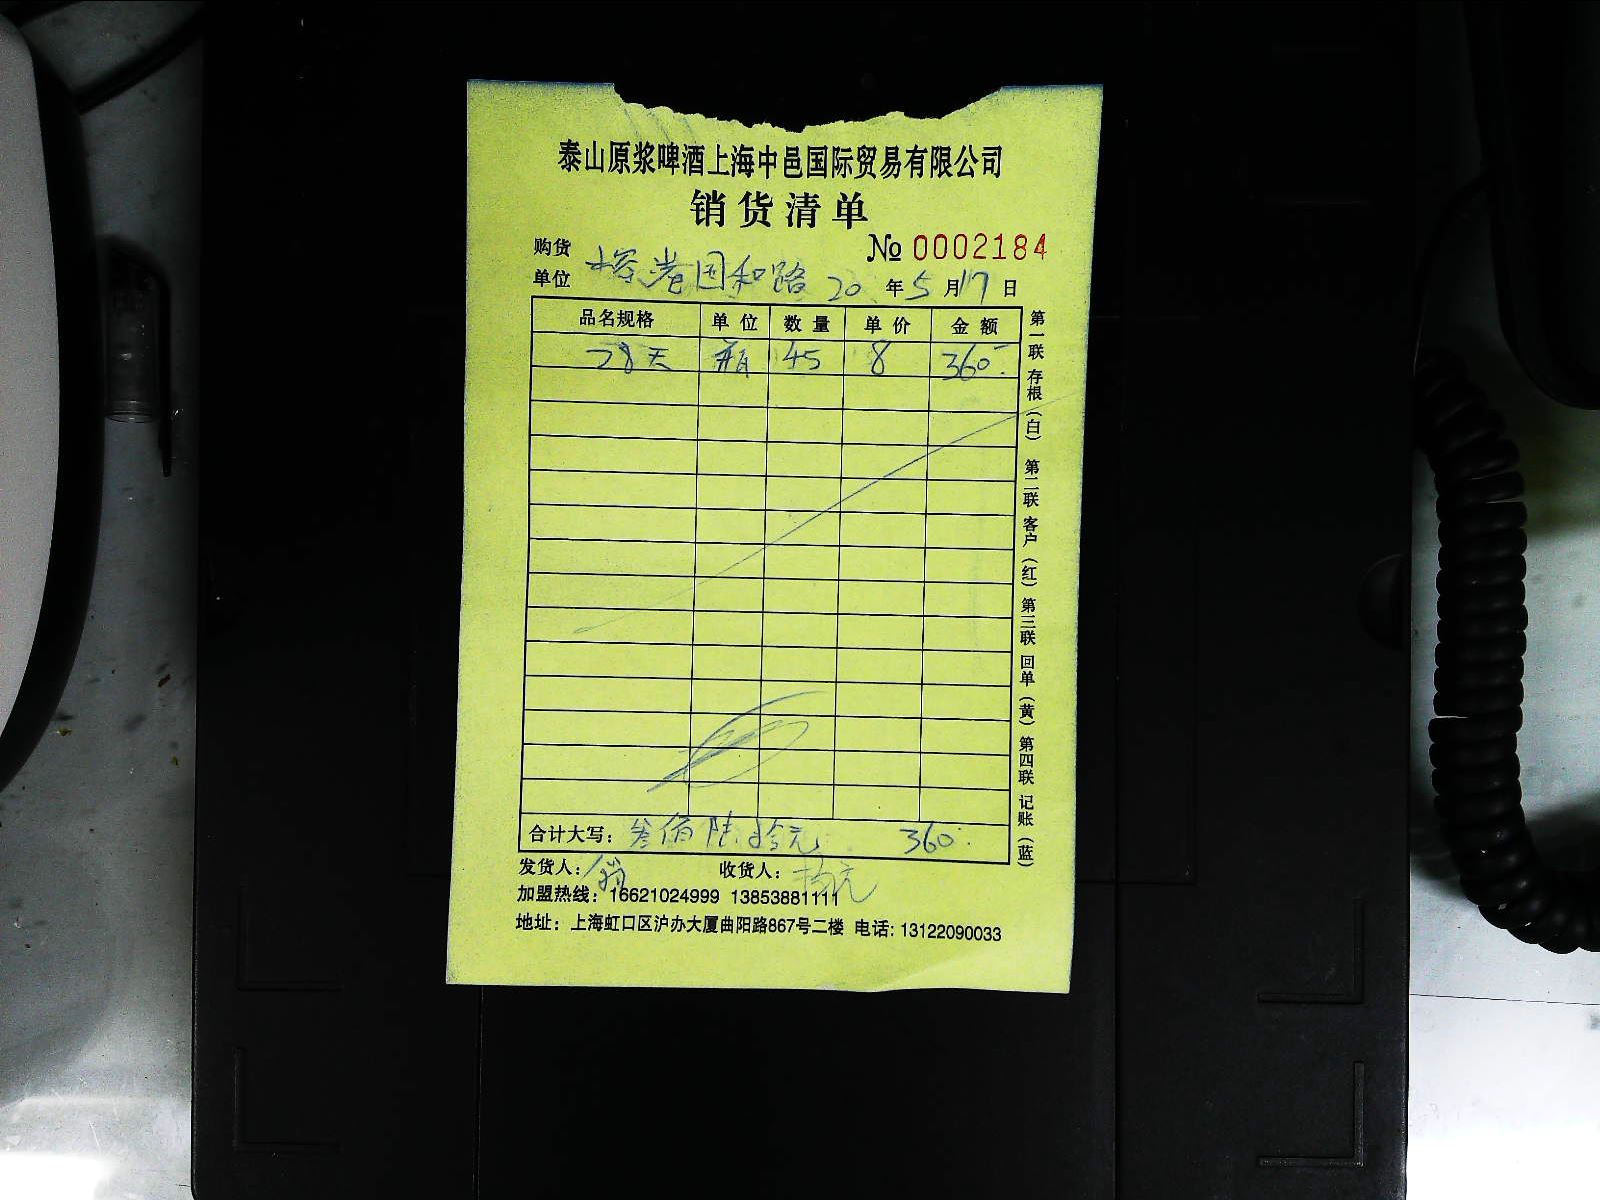 泰山原浆啤酒上海中邑国际贸易有限公司
销货清单
No 0002184
购货单位 榕港国和路 20 年 5 月 17 日
品名规格 单位 数量 单价 金额
28天 瓶 45 8 360.
合计大写： 叁佰陆拾元 360.
发货人： 收货人：
加盟热线：16621024999 13853881111
地址：上海虹口区沪办大厦曲阳路867号二楼 电话：13122090033
第一联 存根（白） 第二联 客户（红） 第三联 回单（黄） 第四联 记账（蓝）